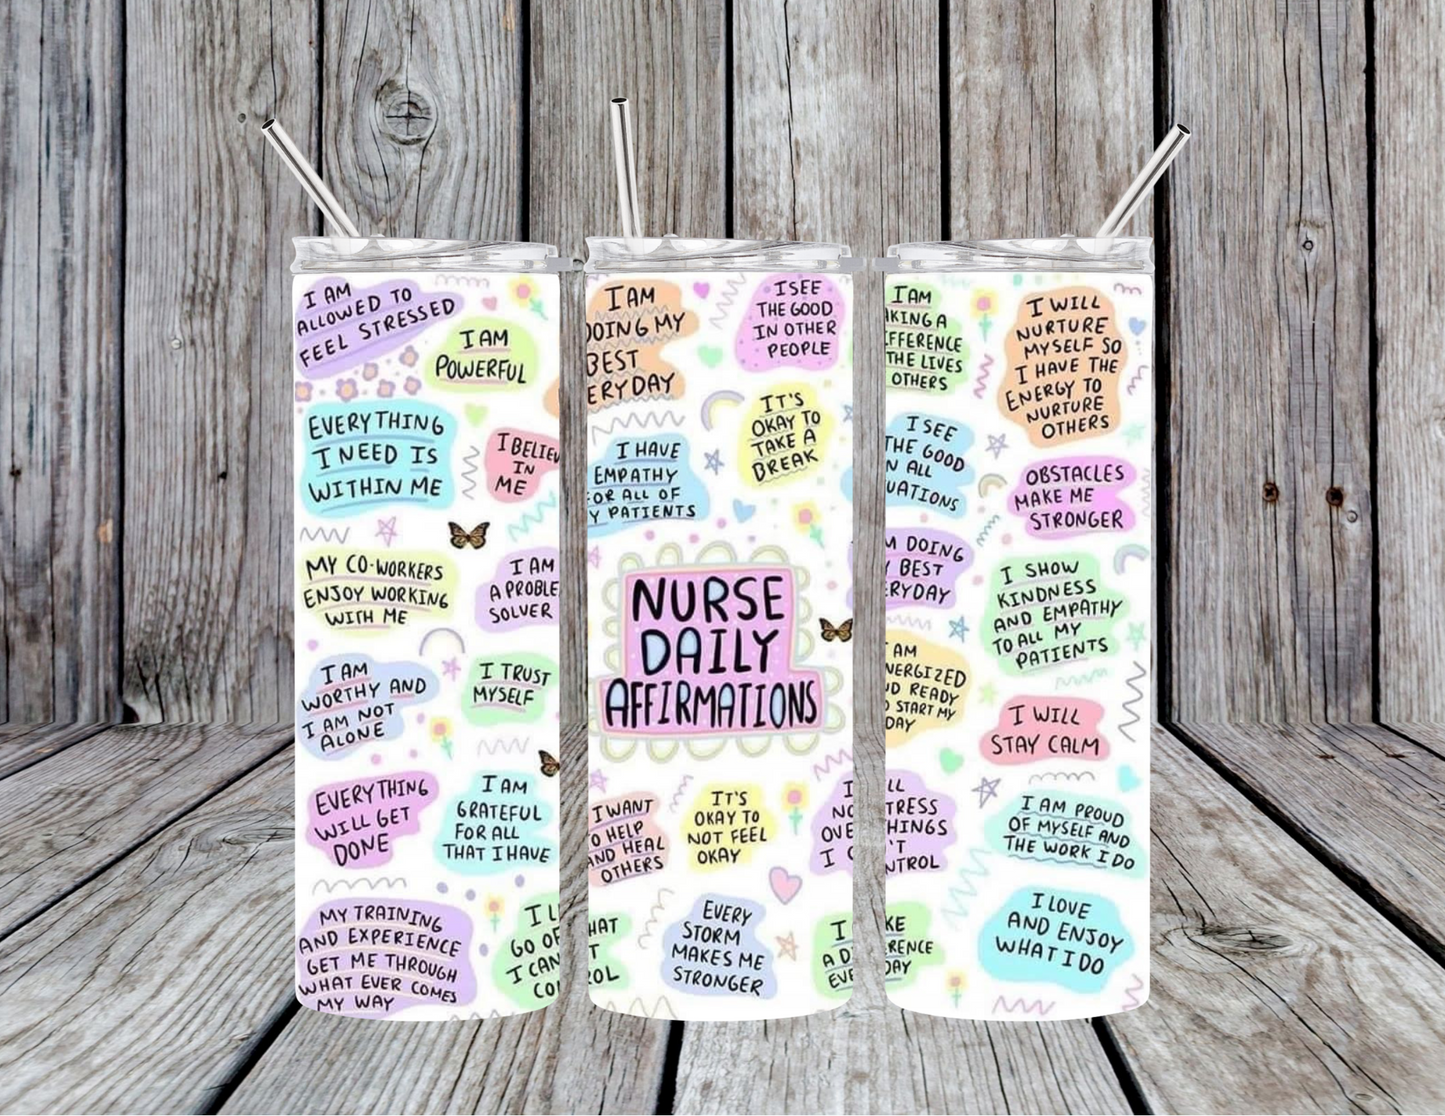 I AM
ALLOWED TO
FEEL STRESSED
I AM
POWERFUL
EVERYTHING
I NEED IS
WITHIN ME
I BELIEV
IN
ME
MY CO-WORKERS
ENJOY WORKING
WITH ME
I AM
A PROBLE
SOLVER
I AM
WORTHY AND
I AM NOT
ALONE
I TRUST
MYSELF
EVERYTHING
WILL GET
DONE
I AM
GRATEFUL
FOR ALL
THAT I HAVE
MY TRAINING
AND EXPERIENCE
GET ME THROUGH
WHAT EVER COMES
MY WAY
I L
GO OF
I CAN
CO
I AM
DOING MY
BEST
ERYDAY
I SEE
THE GOOD
IN OTHER
PEOPLE
IT'S
OKAY TO
TAKE A
BREAK
I HAVE
EMPATHY
FOR ALL OF
Y PATIENTS
NURSE
DAILY
AFFIRMATIONS
I WANT
TO HELP
AND HEAL
OTHERS
IT'S
OKAY TO
NOT FEEL
OKAY
I
NO
OVE
I C
HAT
T
ROL
EVERY
STORM
MAKES ME
STRONGER
I
A D
EVE
I AM
AKING A
FFERENCE
THE LIVES
OTHERS
I WILL
NURTURE
MYSELF SO
I HAVE THE
ENERGY TO
NURTURE
OTHERS
I SEE
THE GOOD
N ALL
UATIONS
OBSTACLES
MAKE ME
STRONGER
M DOING
Y BEST
ERYDAY
I SHOW
KINDNESS
AND EMPATHY
TO ALL MY
PATIENTS
AM
NERGIZED
ND READY
O START MY
DAY
I WILL
STAY CALM
LL
TRESS
HINGS
'T
NTROL
I AM PROUD
OF MYSELF AND
THE WORK I DO
KE
RENCE
DAY
I LOVE
AND ENJOY
WHAT I DO